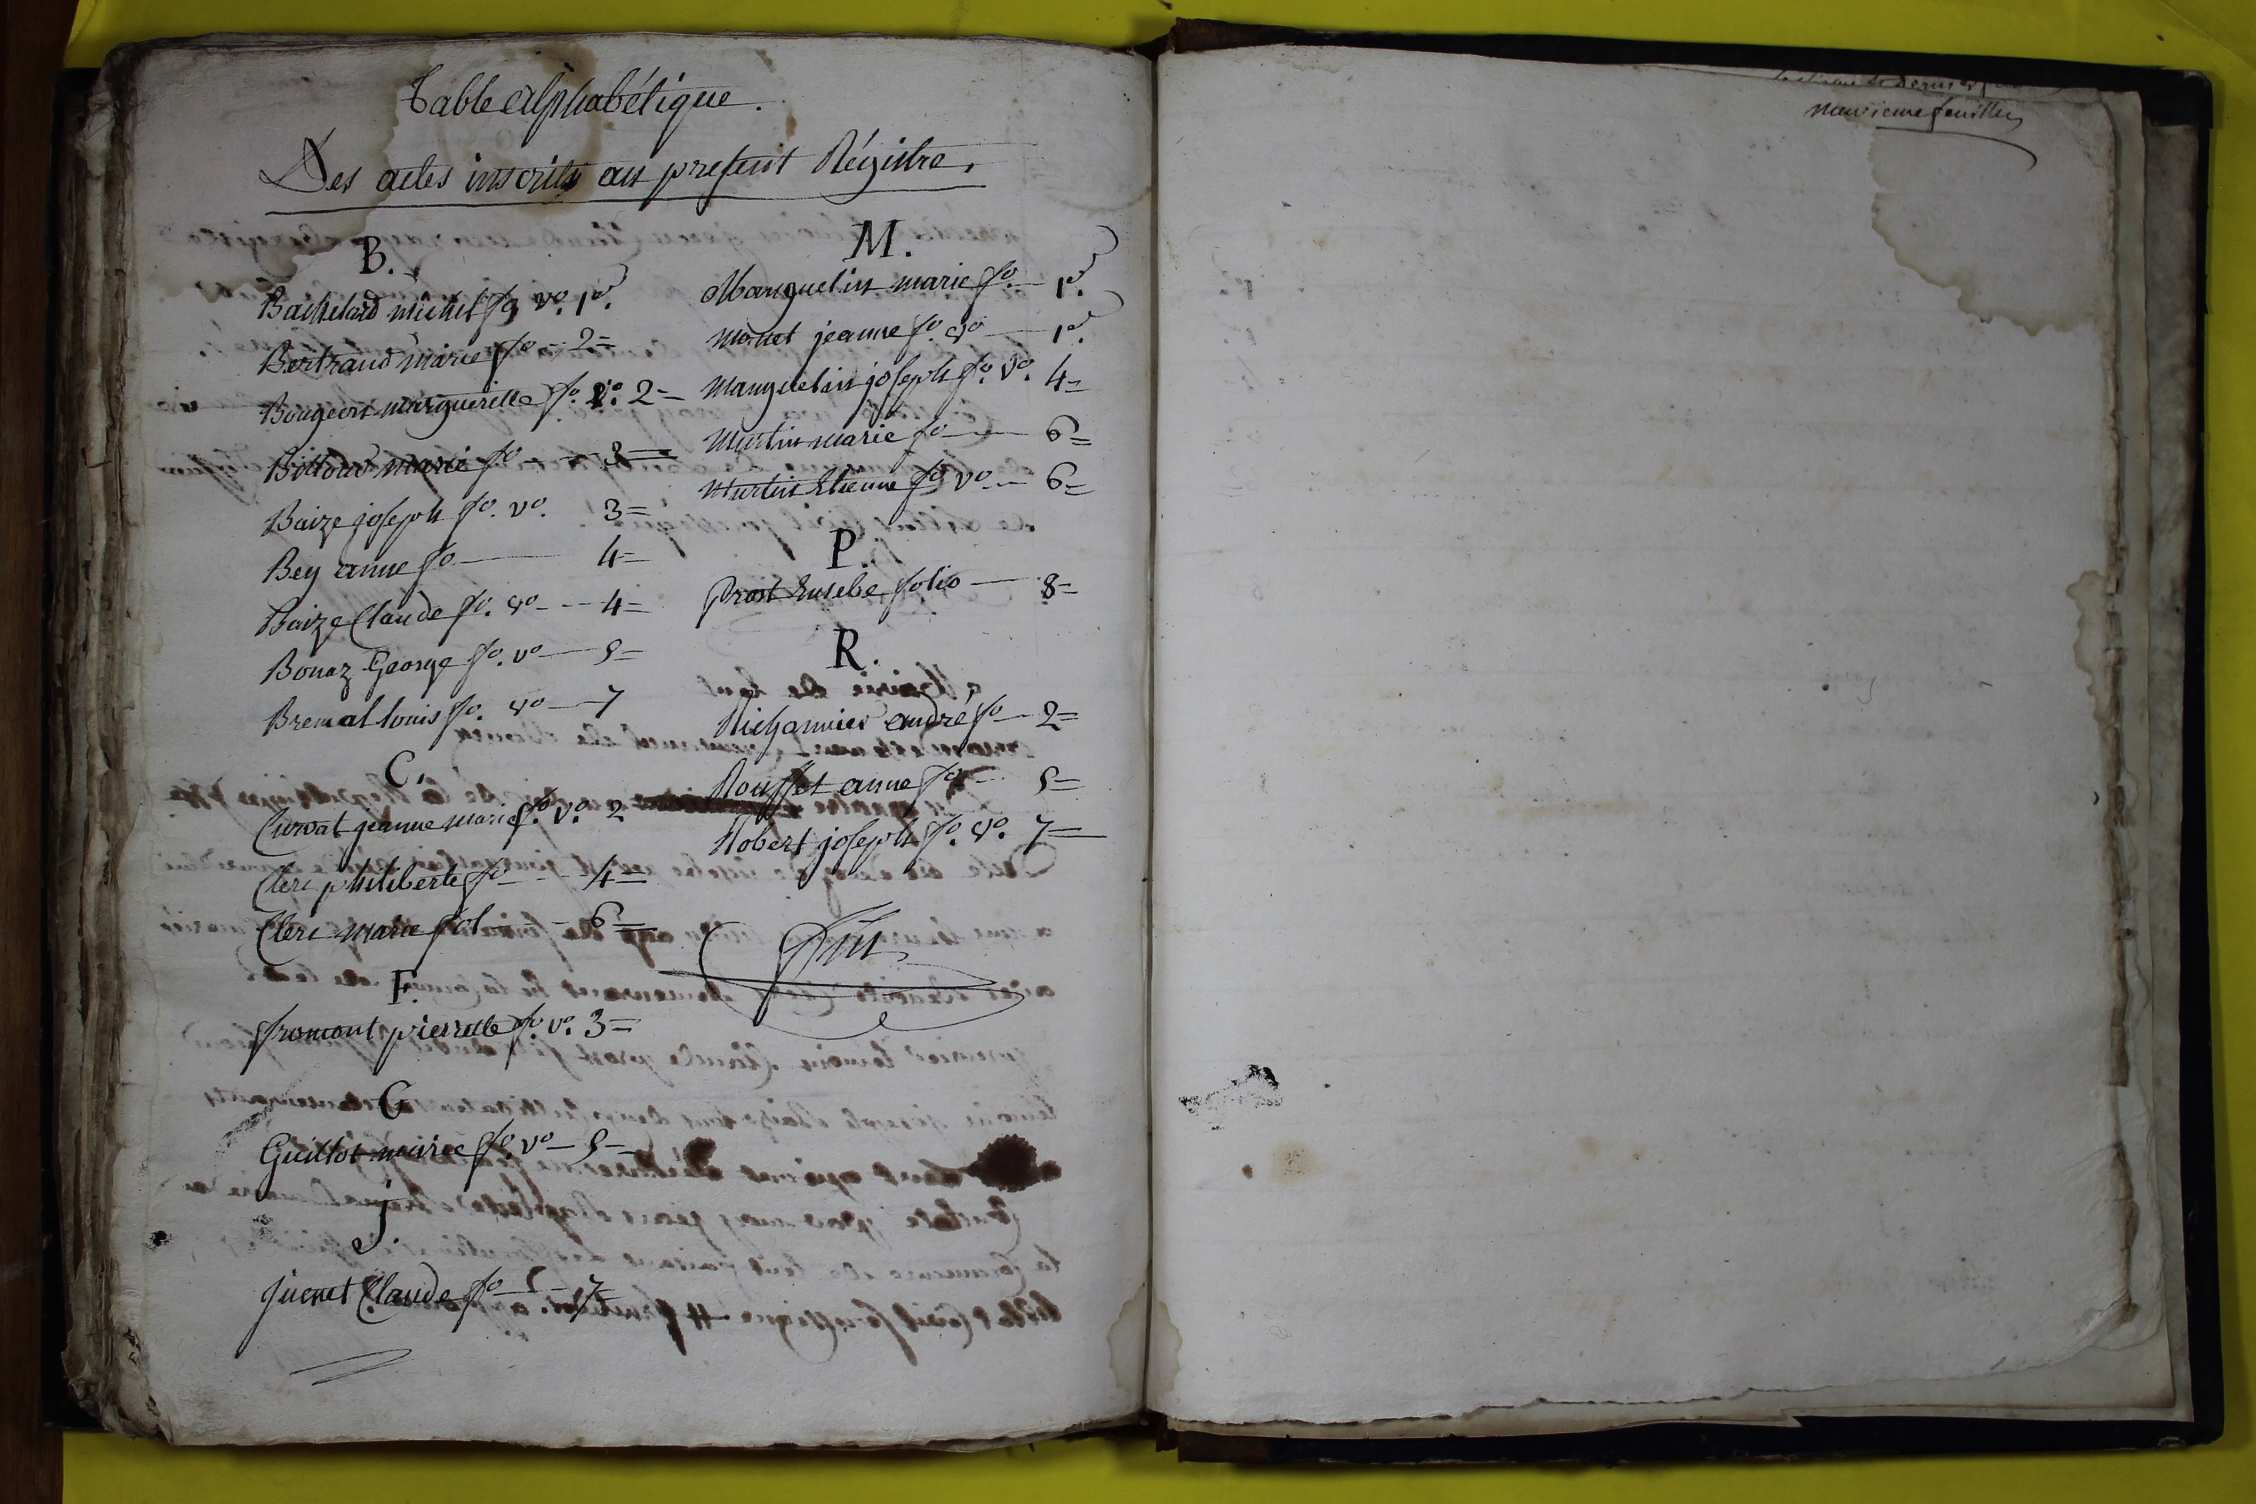 Table Alphabétique.
Des actes inscrits au present Régistre.
B.
Bachelard michel fo vo. 1er.
Bertrand marie fo - 2=
Bougeost marguerite fo. vo. 2=
Billoud marie fo - 3=
Baize joseph fo. vo. 3=
Bey anne fo - 4=
Baize Claude fo. vo - 4=
Bonaz George fo. vo - 5=
Bremal louis fo. vo - 7
C.
Curvat jeanne marie fo. vo. 2
Clerc philiberte fo - 4=
Clerc marie fol - 6=
F.
fromont pierrette fo. vo. 3=
G
Guillot marie fo. vo - 5=
J.
juenet Claude fo - 7=
M.
Manguelin marie fo. - 1er.
Monet jeanne fo. vo - 1er.
Manguelin joseph fo. vo. 4=
Martin marie fo - 6=
Martin Etienne fo vo - 6=
P.
prost Eusebe folio - 8=
R.
Richonnier andré fo - 2=
Rouffet anne fo - 5=
Robert joseph fo. vo. 7=
neuvieme feuillet